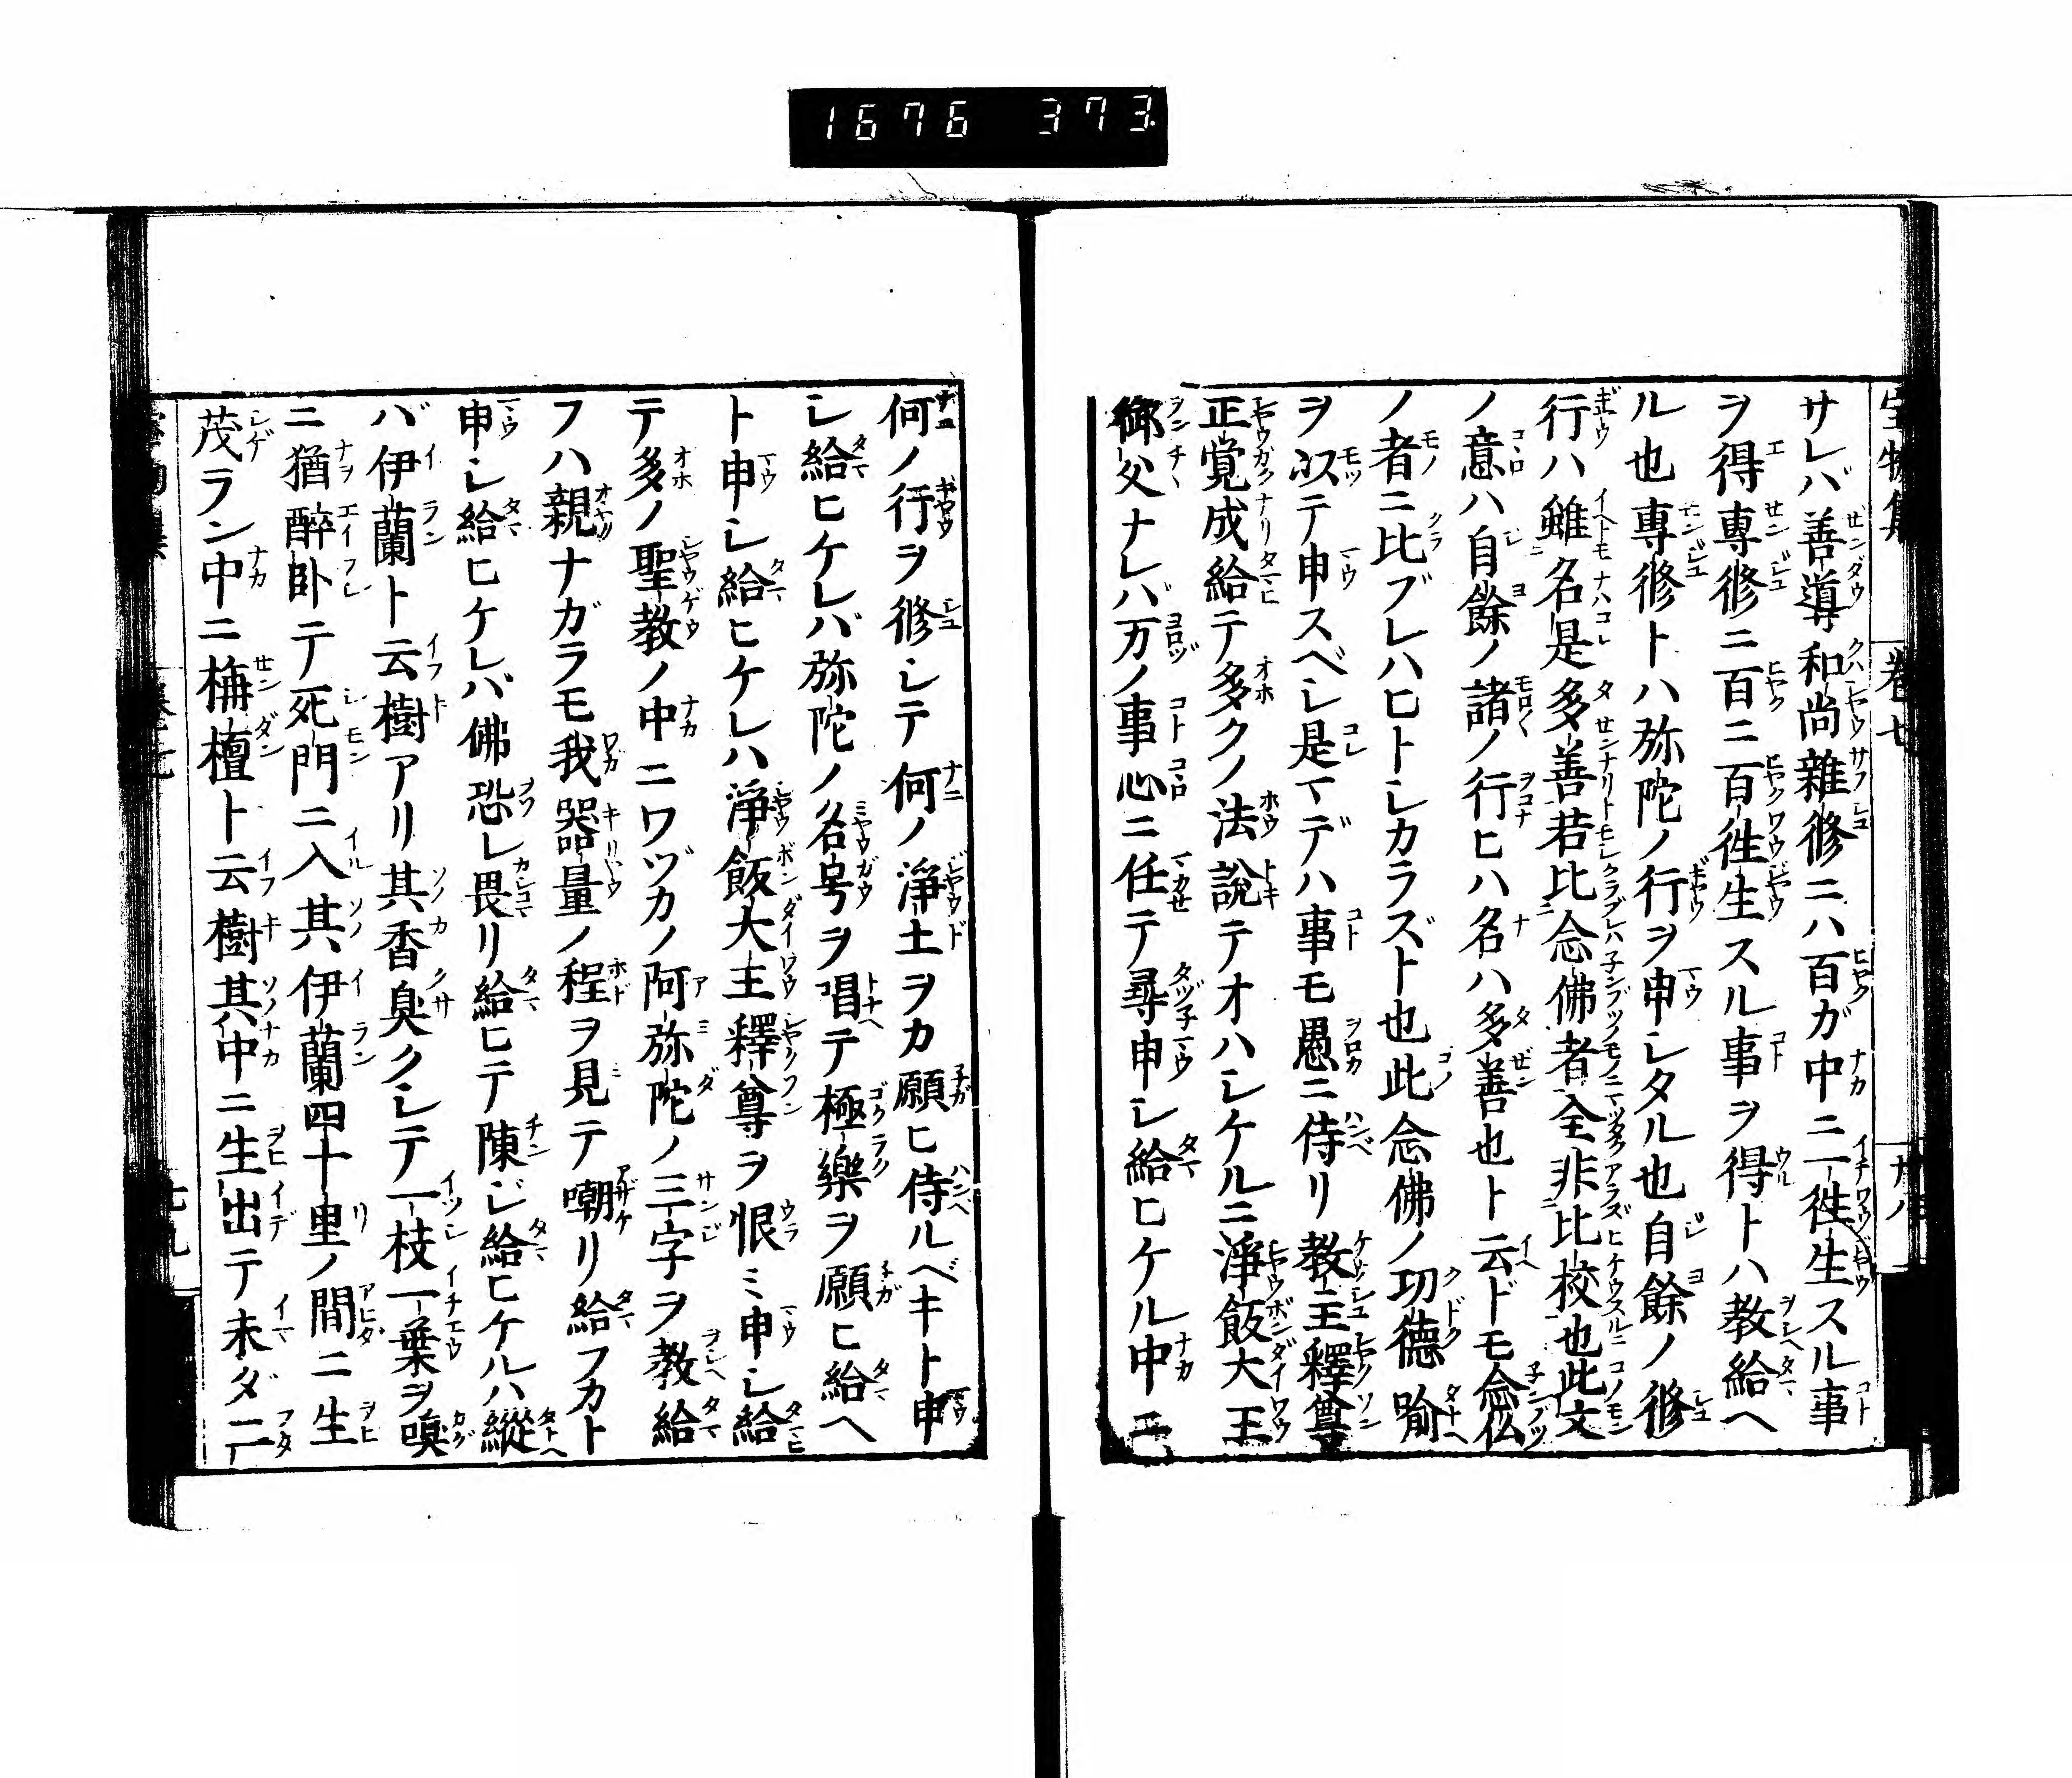 1676 373.
宝物集 巻七 廿八
サレバ善導和尚雜修ニハ百ガ中ニ一徃生スル事
ヲ得專修ニ百ニ百徃生スル事ヲ得トハ教給ヘ
ル也專修トハ弥陀ノ行ヲ申レタル也自餘ノ修
行ハ雖名是多善若比念佛者全非比校也此文
ノ意ハ自餘ノ諸ノ行ヒハ名ハ多善也ト云ドモ念仏
ノ者ニ比ブレハヒトシカラズト也此念佛ノ功德喻
ヲ以テ申スベシ是マデハ事モ愚ニ侍リ教主釋尊
正覚成給テ多クノ法說テオハシケルニ淨飯大王
御父ナレバ万ノ事心ニ任テ尋申シ給ヒケル中ニモ
何ノ行ヲ修シテ何ノ淨土ヲカ願ヒ侍ルベキト申
シ給ヒケレバ弥陀ノ名号ヲ唱テ極樂ヲ願ヒ給ヘ
ト申シ給ヒケレハ淨飯大王釋尊ヲ恨ミ申シ給
テ多ノ聖教ノ中ニワヅカノ阿弥陀ノ三字ヲ教給
フハ親ナガラモ我器量ノ程ヲ見テ嘲リ給フカト
申シ給ヒケレバ佛恐レ畏リ給ヒテ陳ジ給ヒケルハ縱
バ伊蘭ト云樹アリ其香臭クシテ一枝一葉ヲ嗅
ニ猶醉卧テ死門ニ入其伊蘭四十里ノ間ニ生
茂ラン中ニ栴檀ト云樹其中ニ生出テ未ダ二